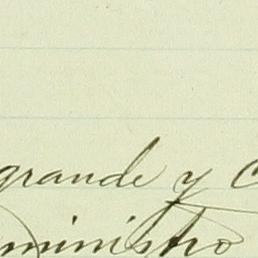 grande y
ministro